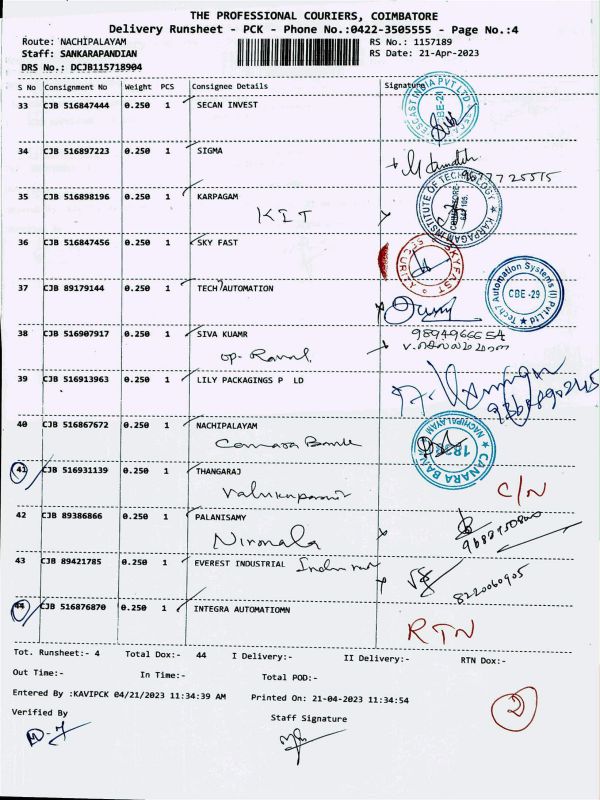 THE PROFESSIONAL COURIERS, COIMBATORE
Delivery Runsheet - PCK - Phone No.:0422-3505555 - Page No.:4
Route: NACHIPALAYAM RS No.: 1157189
Staff: SANKARAPANDIAN RS Date: 21-Apr-2023
DRS No.: DCJB115718904
S No Consignment No Weight PCS Consignee Details Signature
33 CJB 516847444 0.250 1 SECAN INVEST
CBE-21
34 CJB 516897223 0.250 1 SIGMA
35 CJB 516898196 0.250 1 KARPAGAM
KIT
KARPAGAM INSTITUTE OF TECHNOLOGY
COIMBATORE-641 105.
36 CJB 516847456 0.250 1 SKY FAST
SKYFAST SECURITY
37 CJB 89179144 0.250 1 TECH AUTOMATION
Tech7 Automation Systems (I) Pvt Ltd
CBE -29
38 CJB 516907917 0.250 1 SIVA KUAMR
39 CJB 516913963 0.250 1 LILY PACKAGINGS P LD
40 CJB 516867672 0.250 1 NACHIPALAYAM
Canara Bank
CANARA BANK NACHIPALAYAM
41 CJB 516931139 0.250 1 THANGARAJ
C/N
42 CJB 89386866 0.250 1 PALANISAMY
Nirmala
43 CJB 89421785 0.250 1 EVEREST INDUSTRIAL
8220060905
44 CJB 516876870 0.250 1 INTEGRA AUTOMATIOMN
RTN
Tot. Runsheet:- 4 Total Dox:- 44 I Delivery:- II Delivery:- RTN Dox:-
Out Time:- In Time:- Total POD:-
Entered By :KAVIPCK 04/21/2023 11:34:39 AM Printed On: 21-04-2023 11:34:54
2
Verified By Staff Signature